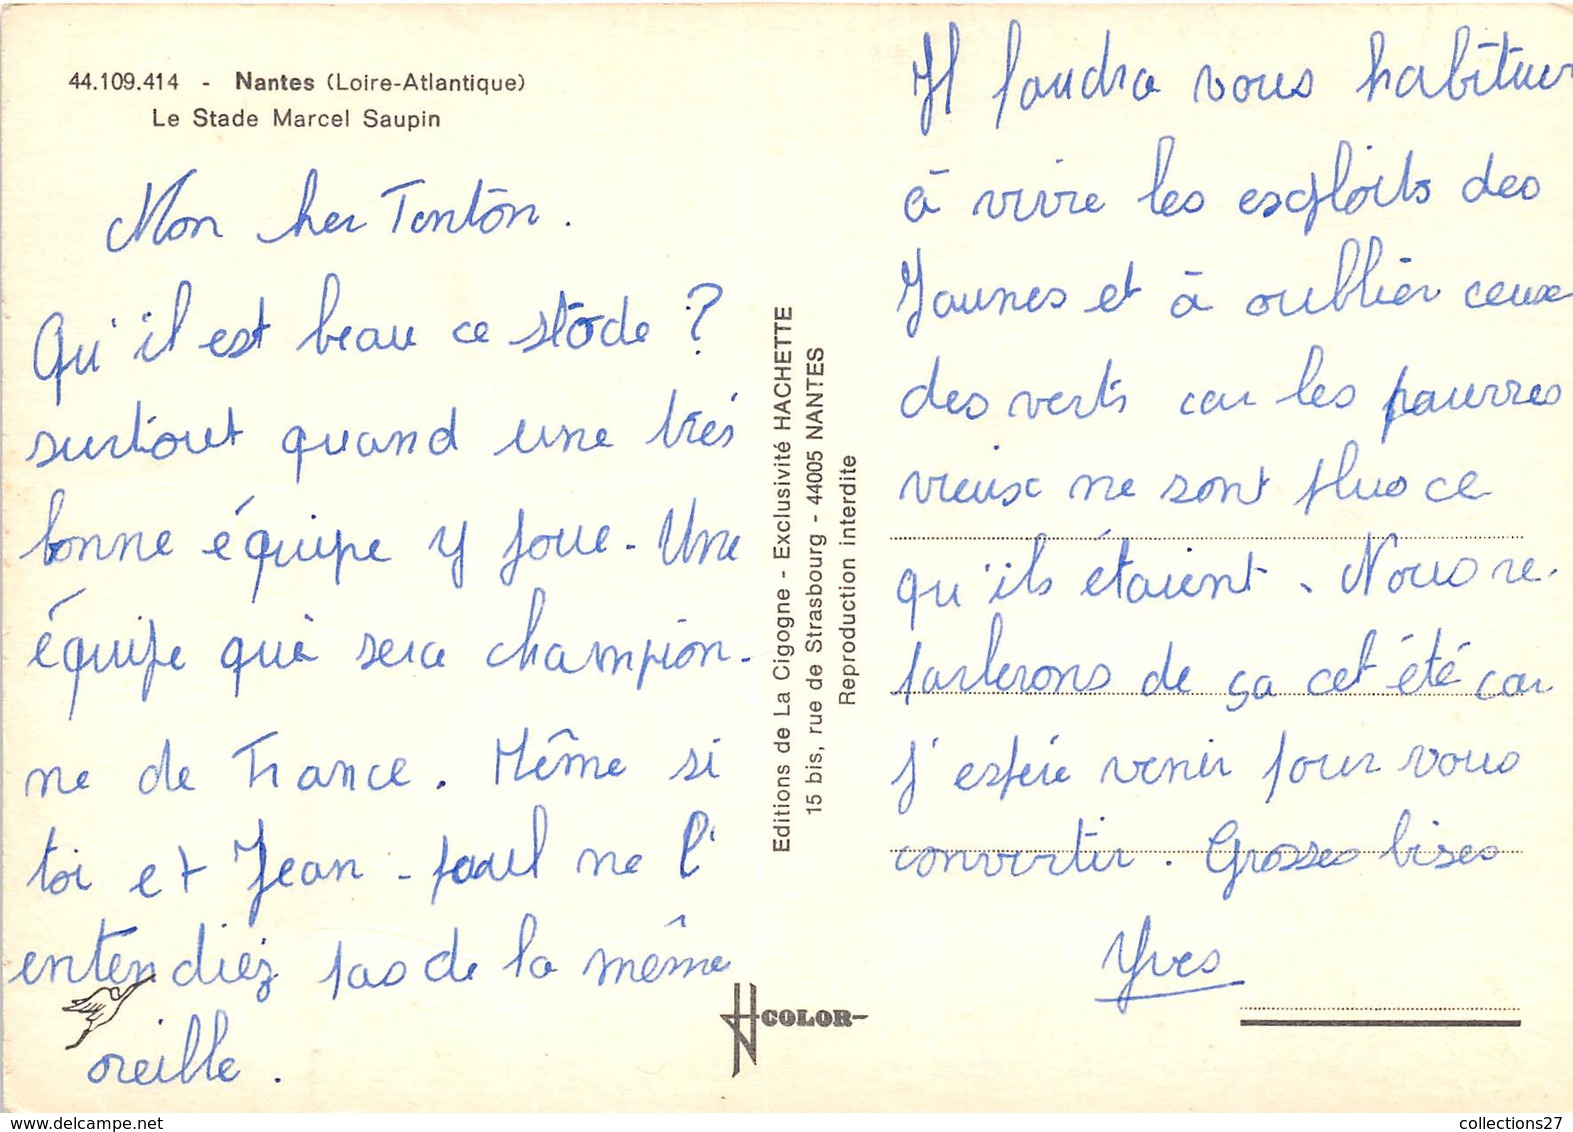 44.109.414 - Nantes (Loire-Atlantique)
Le Stade Marcel Saupin
Mon her Tonton.
Qu'il est beau ce stade ?
surtout quand une très
bonne équipe y joue. Une
équipe qui sera champion-
ne de France. Même si
toi et Jean-paul ne l'
entendiez pas de la même
oreille.
Editions de La Cigogne - Exclusivité HACHETTE
15 bis, rue de Strasbourg - 44005 NANTES
Reproduction interdite
COLOR
Il faudra vous habituer
à vivre les exploits des
Jaunes et à oublier ceux
des verts car les pauvres
vieux ne sont plus ce
qu'ils étaient. Nous re-
parlerons de ça cet été car
j'espère venir pour vous
convertir. Grosses bises
Yves
collections27